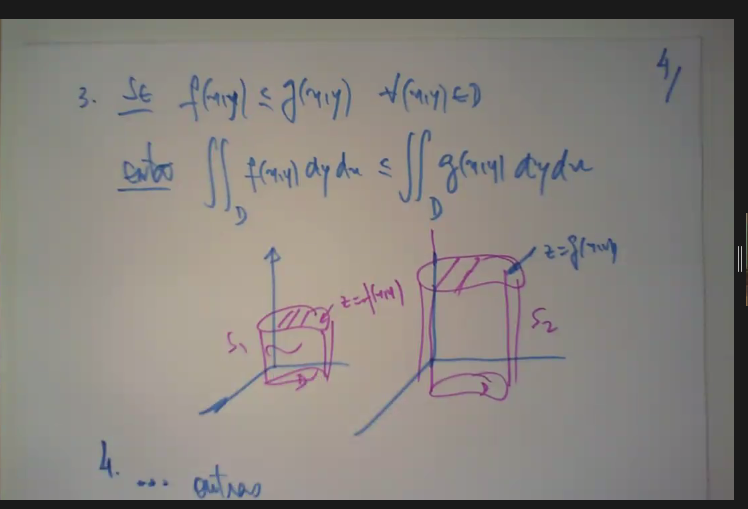 4/
3. SE f(x,y) ≤ g(x,y) ∀(x,y) ∈ D
então ∬_D f(x,y) dy dx ≤ ∬_D g(x,y) dy dx
z=g(x,y)
z=f(x,y)
S₁
S₂
D
D
4. ... outras